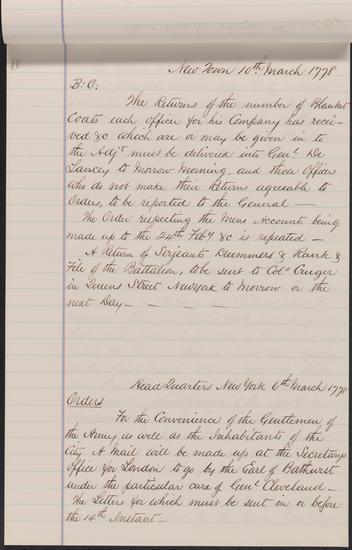 New Town 10th March 1778
B: O:
The Returns of the number of Blanket
Coats each officer for his Company has recei-
ved &c which are or may be given in to
the Adjt must be delivered into Genl De
Lancey to Morrow Morning, and those Officers
who do not make their Returns agreeable to
Orders, to be reported to the General —
The Order respecting the Mens Account being
made up to the 24th Feby &c is repeated —
A Return of Serjeants Drummers & Rank &
File of the Battalion, to be sent to Colo Cruger
in Queens Street New York to Morrow or the
next Day — — — —
Head Quarters New York 6th March 1778
Orders
For the Convenience of the Gentlemen of
the Army as well as the Inhabitants of the
City A Mail will be made up at the Secretarys
Office for London to go by the Earl of Bathurst
under the particular care of Genl Cleveland —
The Letters for which must be sent in or before
the 14th Instant —